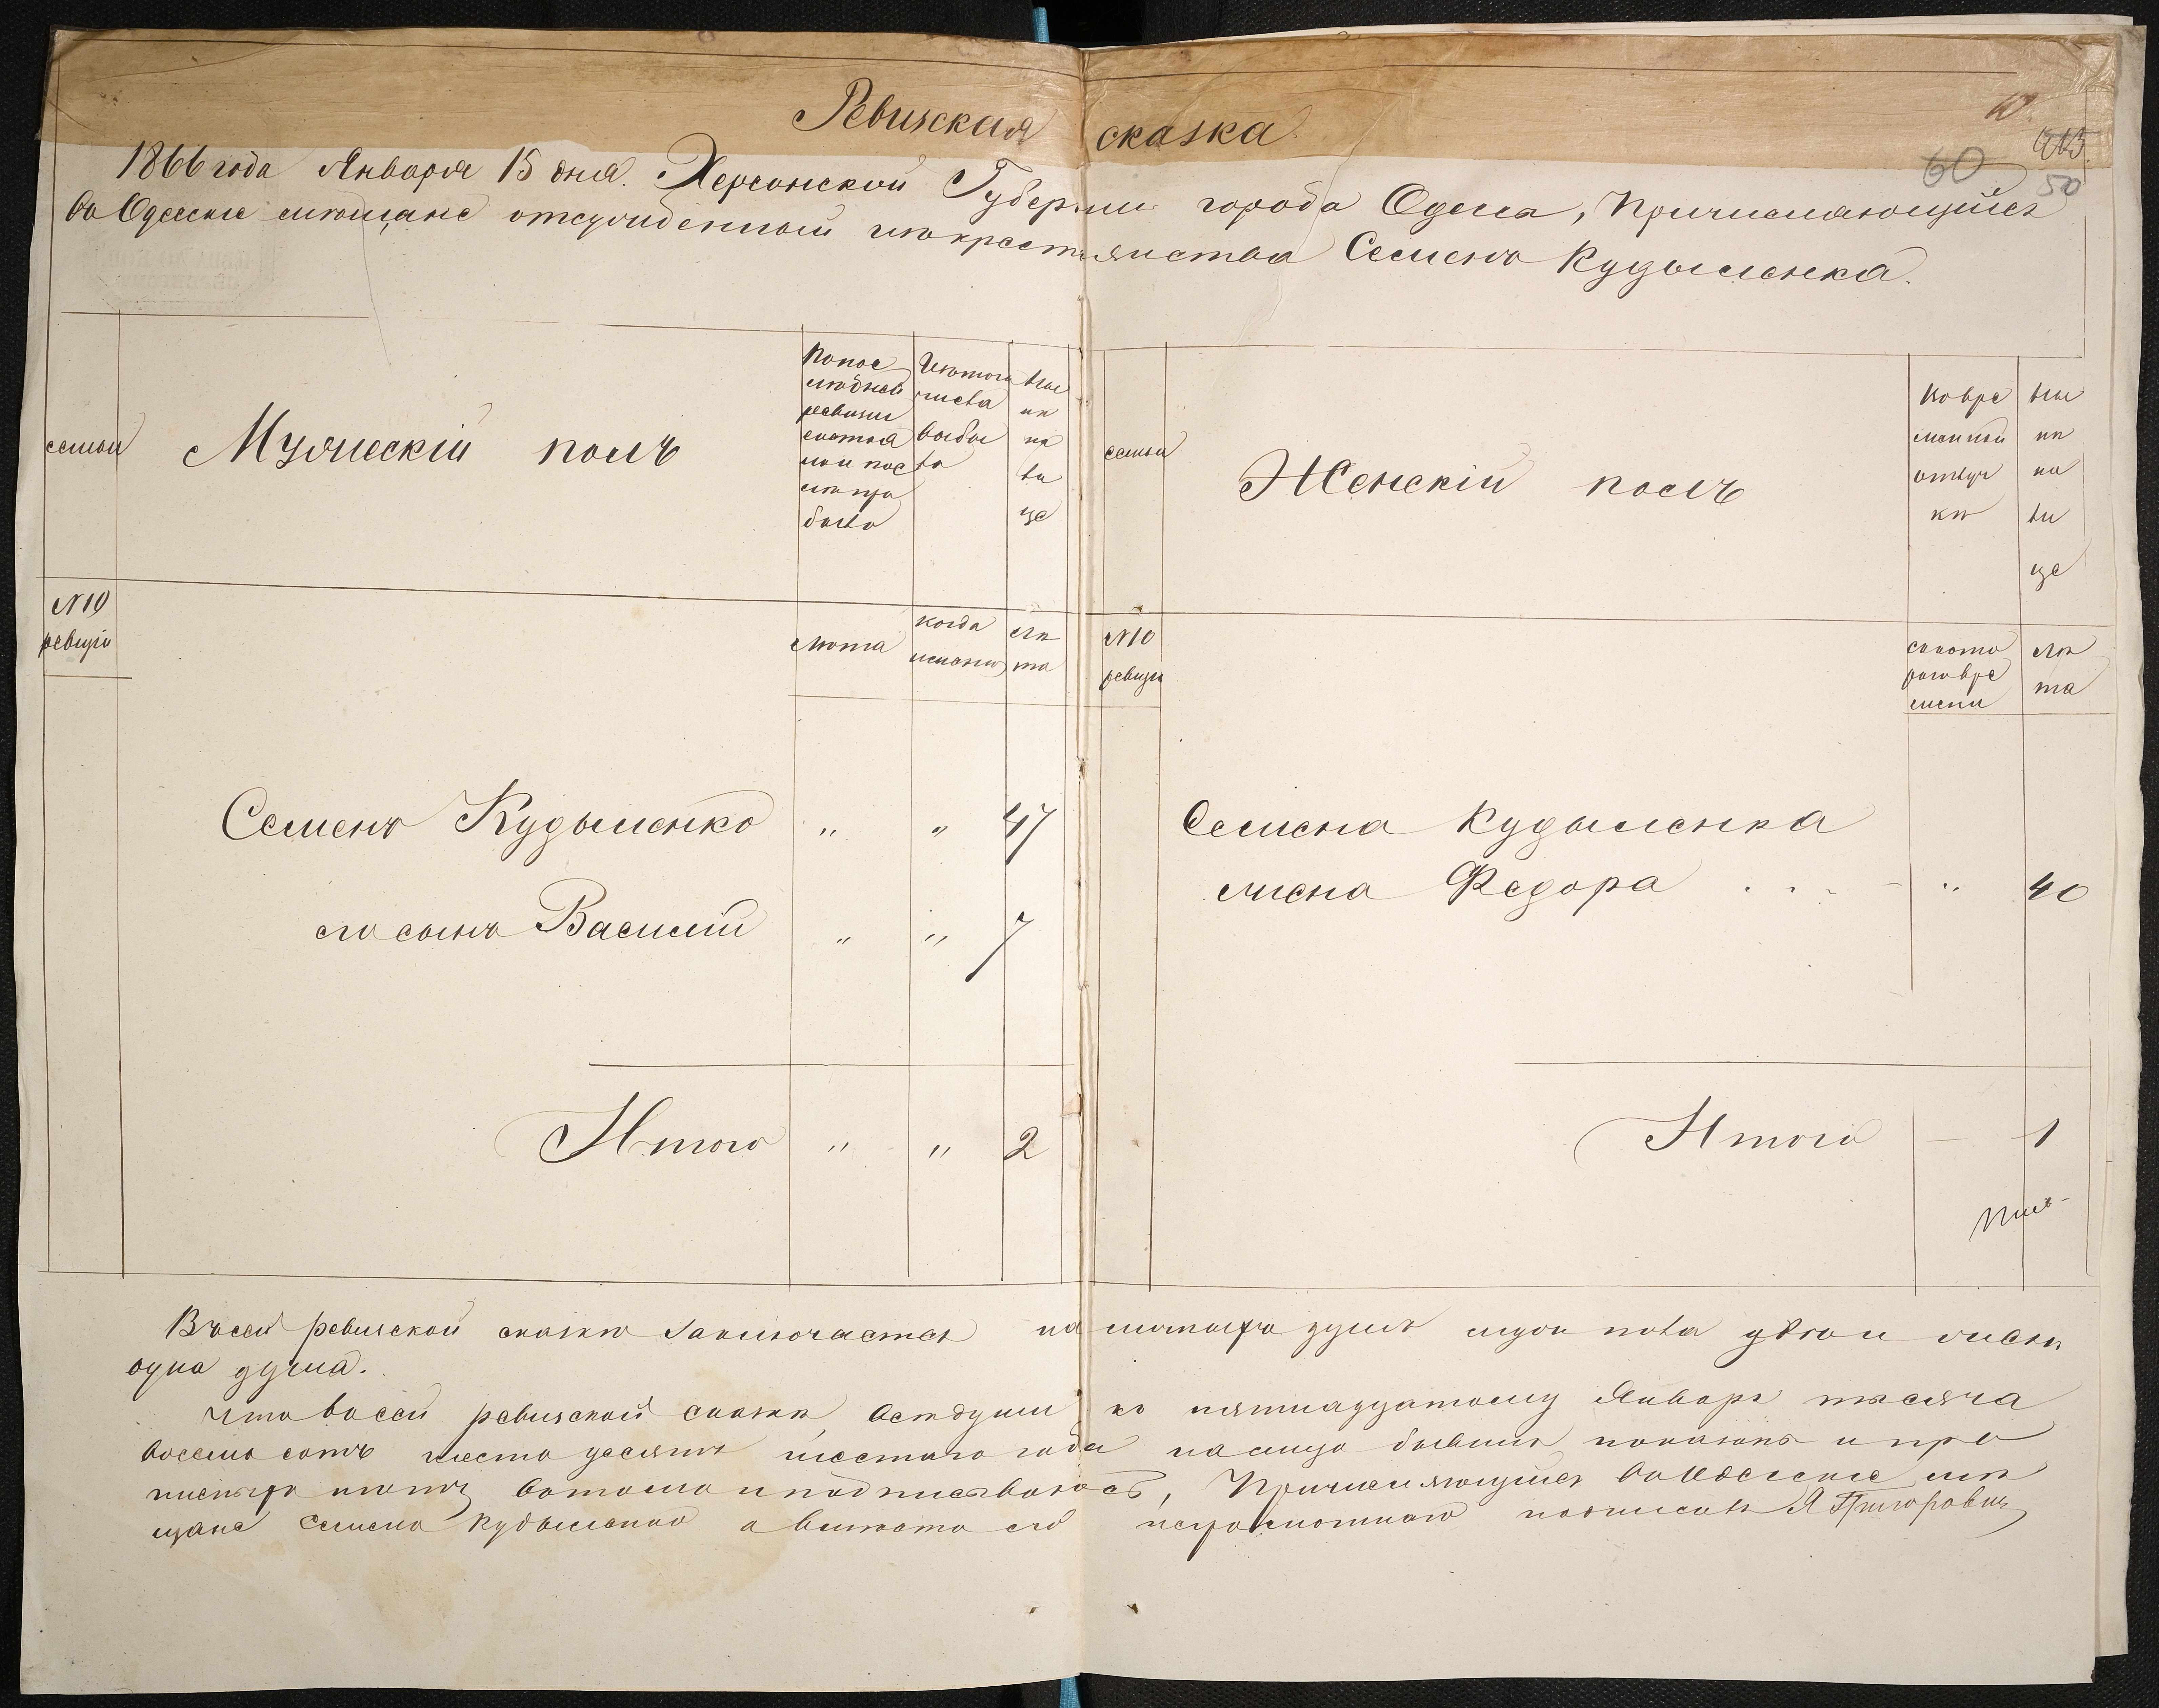 Ревизская сказка
60
50
1866 года Января 15 дня. Херсонской Губернии города Одесса, Причисляющийся
во Одесские мѣщане отсужденный изъ крестьянства Семенъ Кудыменка.
семьи
Мужескій полъ
По пос
лѣдней
ревизіи
состоя
ло и пос
лѣ при
было
Изъ того
числа
выбы
ло
Ны
нѣ
на
ли
це
семьи
Женскій полъ
Во вре
менной
отлуч
кѣ
Ны
нѣ
на
ли
це
№ 10
ревизіи
лѣта
когда
именно
лѣ
та
№ 10
ревизіи
съ кото
раго вре
мени
лѣ
та
Семенъ Кудыменко " " 47
его сынъ Василій " " 7
Итого " " 2
Семена Кудыменка
жена Федора " 40
Итого — 1
Въ сей ревизской сказкѣ заключается на лицо мужеска пола двѣ и женск
одна душа.
Что въ сей ревизской сказкѣ всѣ души къ пятнадцатому Января тысяча
восемь сотъ шесто десятъ шестаго года на лицо бывшія показаны и про
писныхъ нѣтъ въ томъ и подписываюсь, Причисляющійся во Одесские мѣ
щане Семенъ Кудыменко а вмѣсто его неграмотнаго подписалъ Я Григоровичъ